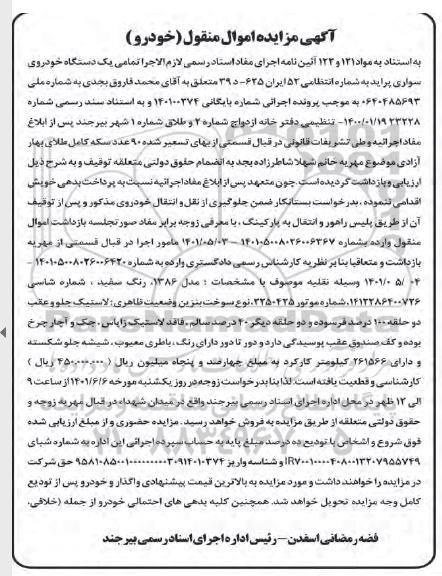 آگهی مزایده اموال منقول (خودرو)
به استناد به مواد ۱۲۱ و ۱۲۲ آئین نامه اجرای مفاد اسناد رسمی لازم الاجرا تمامی یک دستگاه خودروی
سواری پراید به شماره انتظامی ۵۲ ایران ۶۳۵- د ۳۹ متعلق به آقای محمد فاروق بجدی به شماره ملی
۰۶۴۰۴۸۵۶۹۳ به موجب پرونده اجرائی شماره بایگانی ۱۴۰۱۰۰۳۷۴ و به استناد سند رسمی شماره
۲۳۲۲۸ ۱۴۰۰/۰۱/۱۹- تنظیمی دفتر خانه ازدواج شماره ۲ و طلاق شماره ۱ شهر بیرجند پس از ابلاغ
مفاد اجرائیه و طی تشریفات قانونی در قبال قسمتی از بهای تسعیر شده ۹۰ عدد سکه کامل طلای بهار
آزادی موضوع مهریه خانم شهلا شاطرزاده بجد به انضمام حقوق دولتی متعلقه توقیف و به شرح ذیل
ارزیابی و بازداشت گردیده است. چون متعهد پس از ابلاغ مفاد اجرائیه نسبت به پرداخت بدهی خویش
اقدامی ننموده ، بدرخواست بستانکار ضمن جلوگیری از نقل و انتقال خودروی مذکور و پس از توقیف
آن از طریق پلیس راهور و انتقال به پارکینگ ، با معرفی زوجه برابر مفاد صورتجلسه بازداشت اموال
منقول وارده بشماره ۱۴۰۱۰۵۰۰۸۰۲۶۰۰۶۳۶۷ – ۱۴۰۱/۰۵/۰۳ مامور اجرا در قبال قسمتی از مهریه
بازداشت و متعاقبا بنا بر نظریه کارشناس رسمی دادگستری وارده به شماره ۱۴۰۱۰۵۰۰۸۰۲۶۰۰۶۴۲۰ –
۰۴ /۱۴۰۱/۰۵ وسیله نقلیه موصوف با مشخصات : مدل ۱۳۸۶، رنگ سفید ، شماره شاسی
۱۴۱۲۲۸۶۴۰۰۷۲۶، شماره موتور ۲۲۵۰۴۲۵، نوع سوخت بنزین وضعیت ظاهری : لاستیک جلو و عقب
دو حلقه ۱۰۰ درصد فرسوده و دو حلقه دیگر ۴۰ درصد سالم ، فاقد لاستیک زاپاس ، جک و آچار چرخ
بوده و کف صندوق عقب پوسیدگی دارد و دور تا دور دارای رنگ ، باطری معیوب ، شیشه جلو شکسته
و دارای ۲۶۱۵۶۶ کیلومتر کارکرد به مبلغ چهارصد و پنجاه میلیون ریال ( ۴۵۰،۰۰۰،۰۰۰ ریال )
کارشناسی و قطعیت یافته است. لذا بنا بدرخواست زوجه در روز یکشنبه مورخه ۱۴۰۱/۶/۶ از ساعت ۹
الی ۱۲ ظهر در محل اداره اجرای اسناد رسمی بیرجند واقع در میدان شهداء، در قبال مهریه زوجه و
حقوق دولتی متعلقه از طریق مزایده به فروش خواهد رسید . مزایده حضوری و از مبلغ ارزیابی شده
فوق شروع و اشخاص با تودیع ده درصد مبلغ پایه به حساب سپرده اجرائی این اداره به شماره شبای
و شناسه واریز حق شرکت
در مزایده را خواهند داشت و مورد مزایده به بالاترین قیمت پیشنهادی واگذار و خودرو پس از تودیع
کامل وجه مزایده تحویل خواهد شد. همچنین کلیه بدهی های احتمالی خودرو از جمله (خلافی،
فضه رمضانی اسفدن – رئیس اداره اجرای اسناد رسمی بیرجند